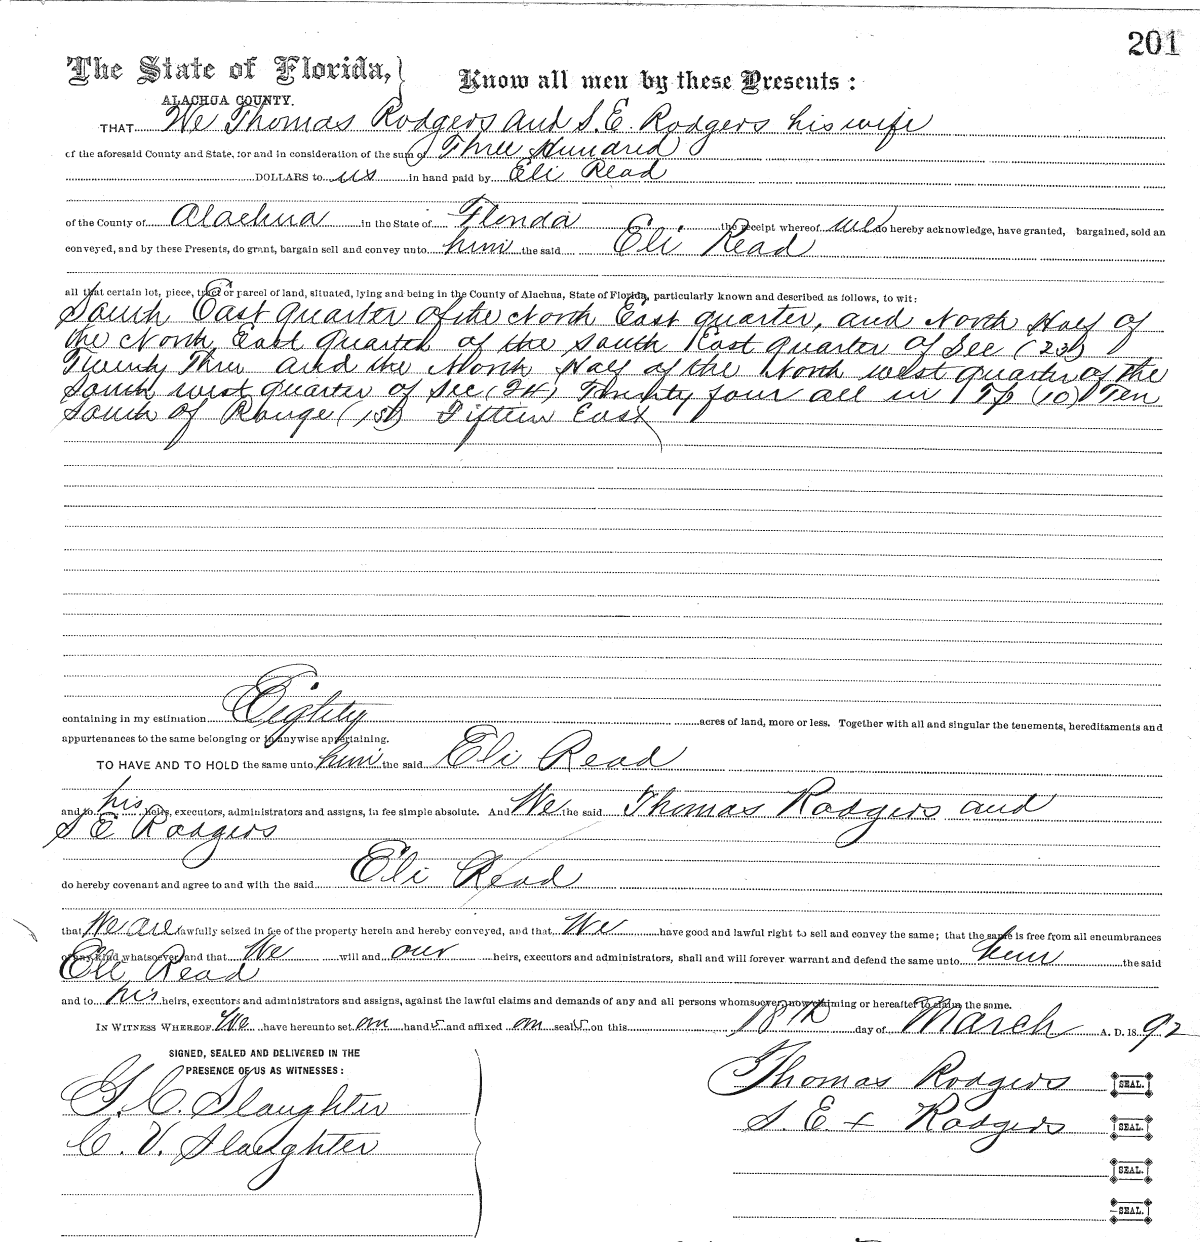 201
The State of Florida, } Know all men by these Presents :
ALACHUA COUNTY.
THAT We Thomas Rodgers and S. E. Rodgers his wife
of the aforesaid County and State, for and in consideration of the sum of Three Hundred
DOLLARS to us in hand paid by Eli Read
of the County of Alachua in the State of Florida the receipt whereof we do hereby acknowledge, have granted, bargained, sold an
conveyed, and by these Presents, do grant, bargain sell and convey unto him the said Eli Read
all that certain lot, piece, tract or parcel of land, situated, lying and being in the County of Alachua, State of Florida, particularly known and described as follows, to wit:
South East quarter of the North East quarter, and North Half of
the North East quarter of the South East quarter of Sec (23)
Twenty Three and the North Half of the North west quarter of the
South west quarter of Sec (24) Twenty four all in Tp (10) Ten
South of Range (15) Fifteen East
containing in my estimation Eighty acres of land, more or less. Together with all and singular the tenements, hereditaments and
appurtenances to the same belonging or in anywise appertaining.
TO HAVE AND TO HOLD the same unto him the said Eli Read
and to his heirs, executors, administrators and assigns, in fee simple absolute. And We the said Thomas Rodgers and
S E Rodgers
do hereby covenant and agree to and with the said Eli Read
that We are lawfully seized in fee of the property herein and hereby conveyed, and that We have good and lawful right to sell and convey the same; that the same is free from all encumbrances
of any kind whatsoever and that We will and our heirs, executors and administrators, shall and will forever warrant and defend the same unto him the said
Eli Read
and to his heirs, executors and administrators and assigns, against the lawful claims and demands of any and all persons whomsoever, now claiming or hereafter to claim the same.
IN WITNESS WHEREOF We have hereunto set our hands and affixed our seals on this 18th day of March A. D. 1892
SIGNED, SEALED AND DELIVERED IN THE
PRESENCE OF US AS WITNESSES :
G. C. Slaughter
C. V. Slaughter
Thomas Rodgers SEAL.
S. E. + Rodgers SEAL.
SEAL.
SEAL.